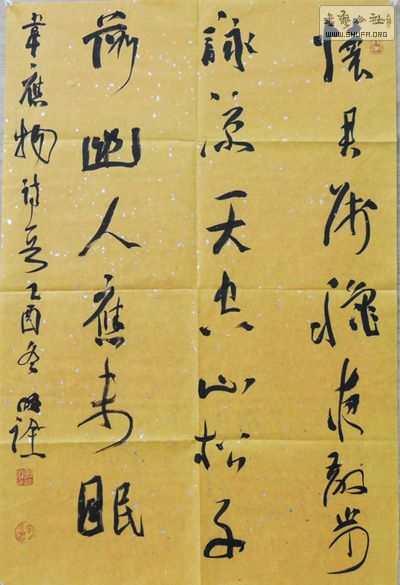 書藝公社
WWW.SHUFA.ORG
懷君屬穐夜散步
詠涼天空山松子
落幽人應未眠
韋應物詩 乙酉冬